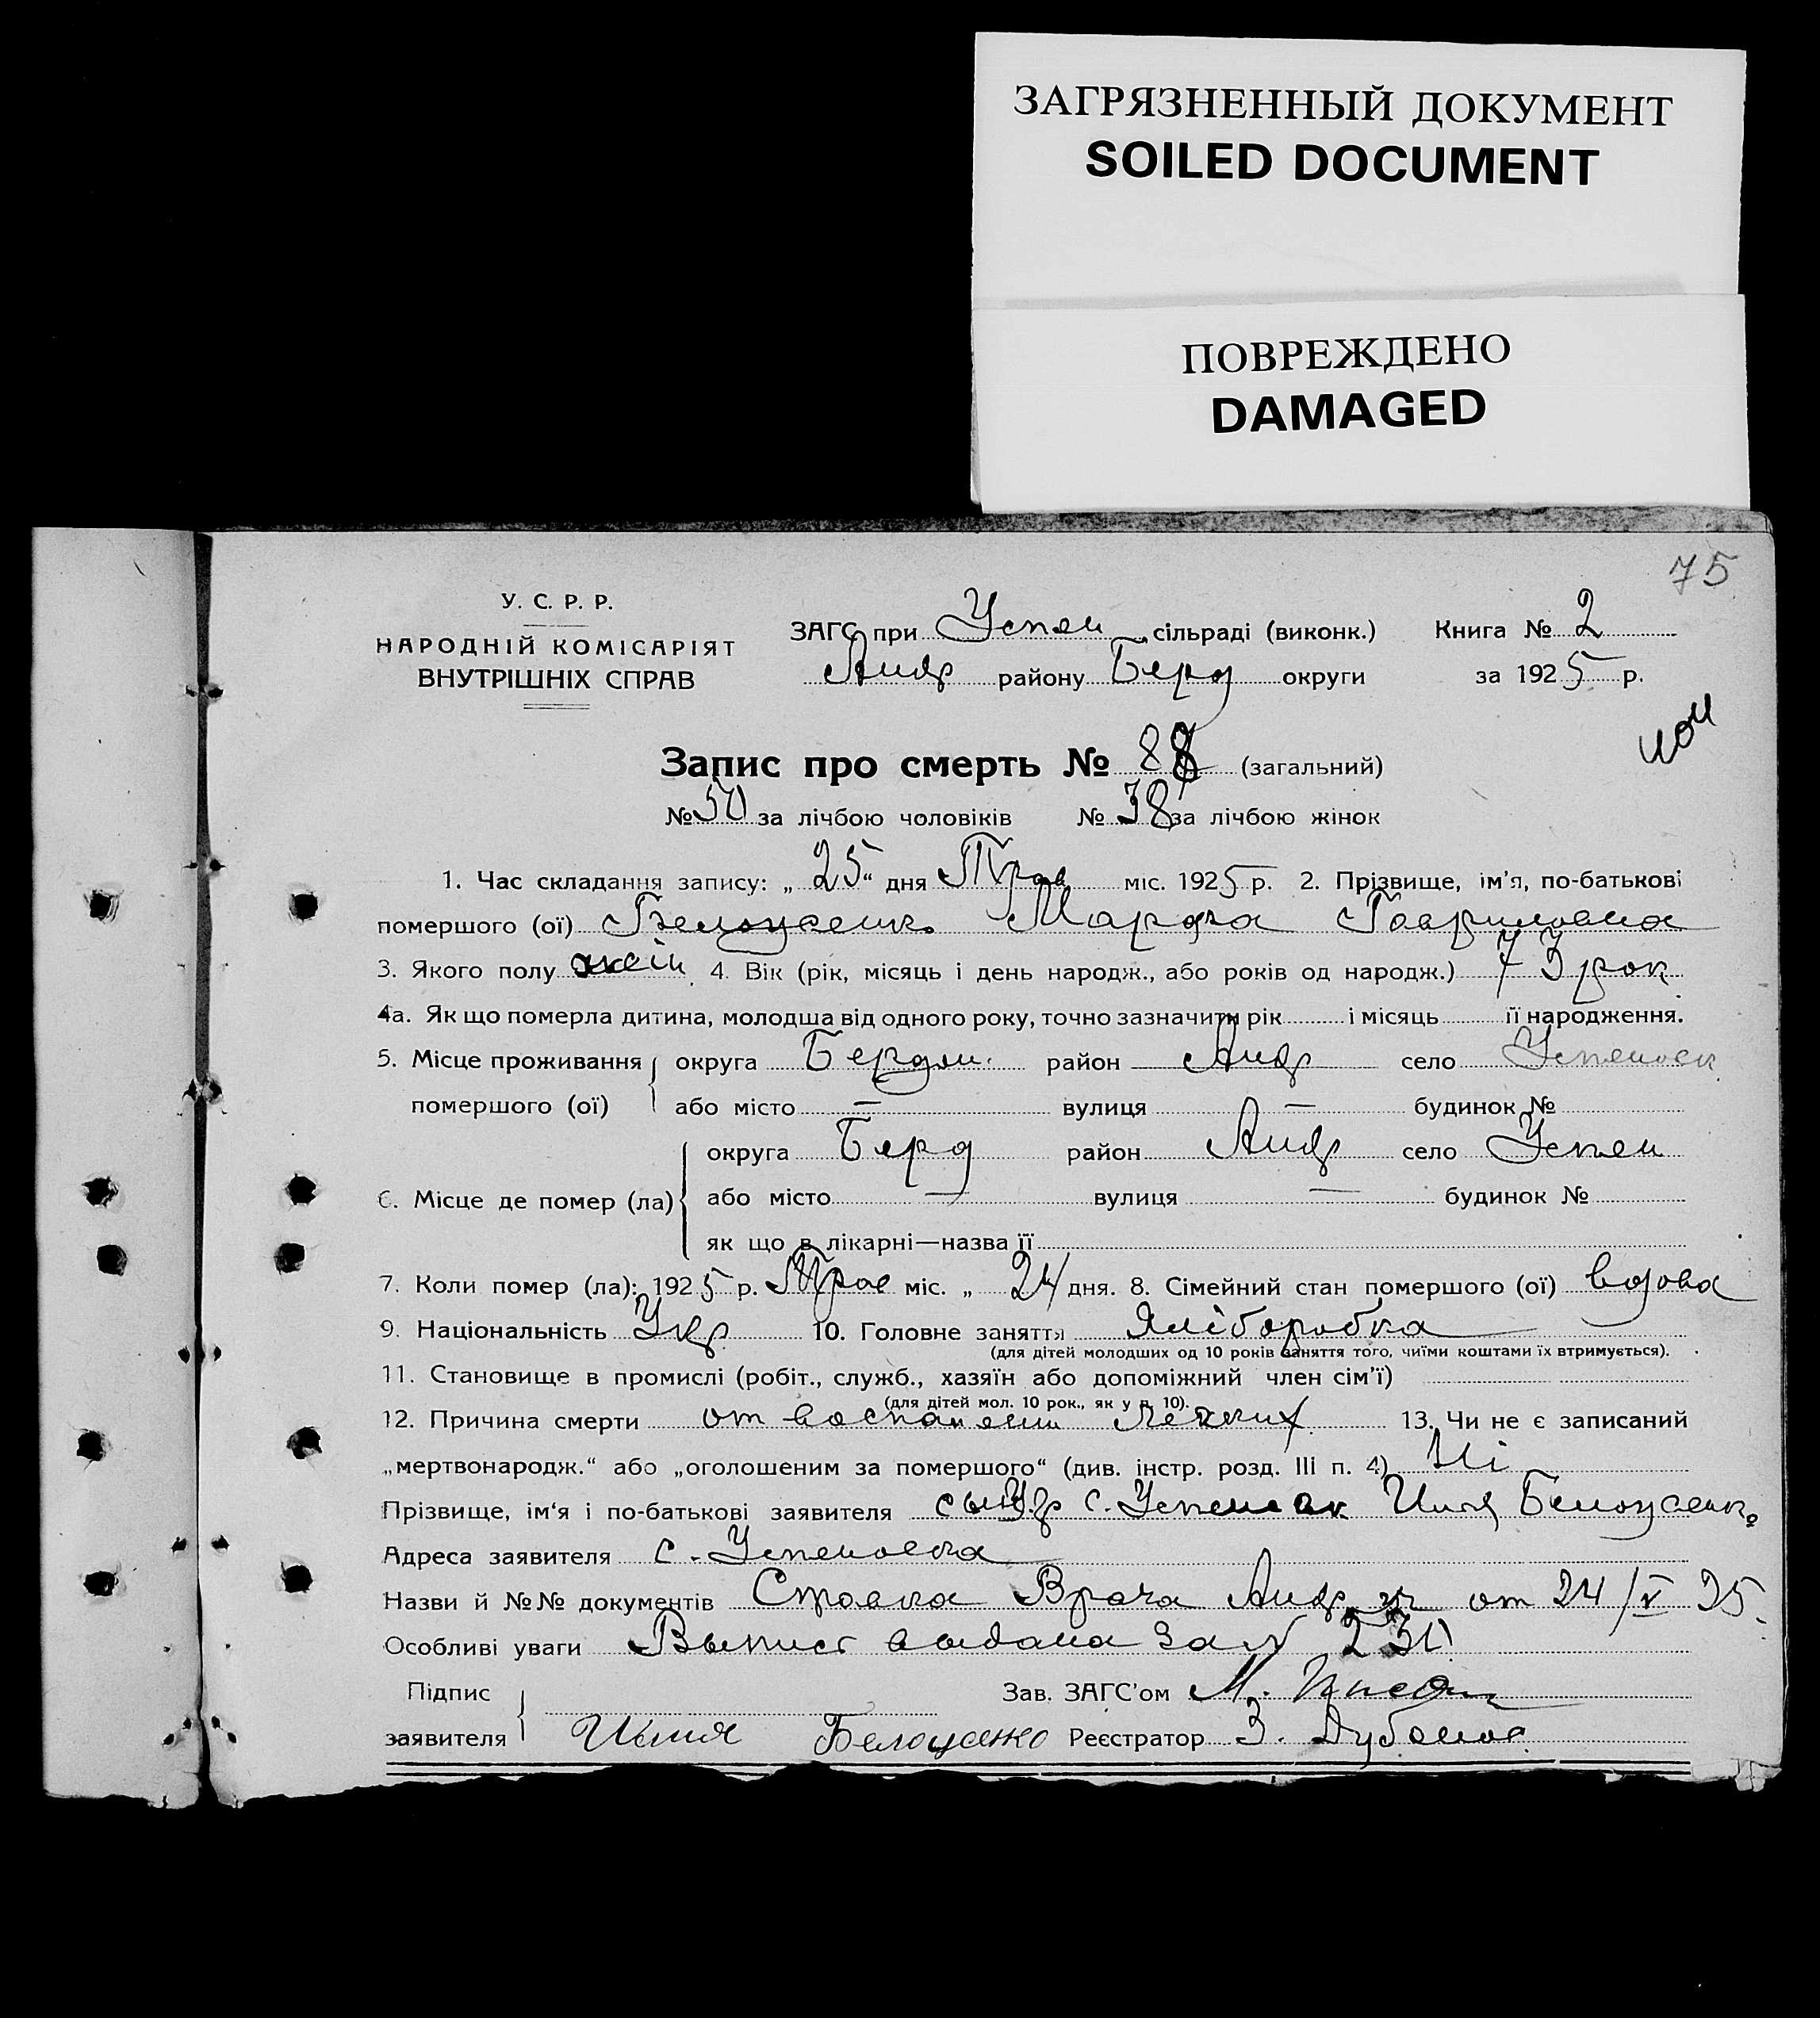 ЗАГРЯЗНЕННЫЙ ДОКУМЕНТ
SOILED DOCUMENT
ПОВРЕЖДЕНО
DAMAGED
75
У. С. Р. Р.
НАРОДНІЙ КОМІСАРІЯТ
ВНУТРІШНІХ СПРАВ
ЗАГС при Успен сільраді (виконк.) Книга № 2
Андр району Берд округи за 1925 р.
Запис про смерть № 88 (загальний)
№ 50 за лічбою чоловіків № 38 за лічбою жінок
1. Час складання запису: „ 25 “ дня Трав міс. 1925 р. 2. Прізвище, ім’я, по-батькові
помершого (ої) Белоусенко Марфа Гавриловна
3. Якого полу жін 4. Вік (рік, місяць і день народж., або років од народж.) 73 рок
4а. Як що померла дитина, молодша від одного року, точно зазначити рік і місяць її народження.
5. Місце проживання округа Бердян. район Андр село Успеновк
помершого (ої) або місто — вулиця — будинок №
округа Берд район Андр село Успен
6. Місце де помер (ла) або місто — вулиця — будинок №
як що в лікарні—назва її
7. Коли помер (ла): 1925 р. Трав міс. „ 24 дня. 8. Сімейний стан помершого (ої) вдова
9. Національність Укр 10. Головне заняття Хліборобка
(для дітей молодших од 10 років заняття того, чиїми коштами їх втримується).
11. Становище в промислі (робіт., служб., хазяїн або допоміжний член сім’ї)
(для дітей мол. 10 рок., як у п. 10).
12. Причина смерти от воспаления легких 13. Чи не є записаний
„мертвонародж.“ або „оголошеним за помершого“ (див. інстр. розд. III п. 4) Ні
Прізвище, ім‘я і по-батькові заявителя с. Успеновк Илья Белоусенко
Адреса заявителя с. Успеновка
Назви й №№ документів Справка Врача Андр от 24/V 25.
Особливі уваги Выпись выдана за № 230
Підпис Зав. ЗАГС’ом М.
заявителя Илья Белоусенко Реєстратор З. Дубанов